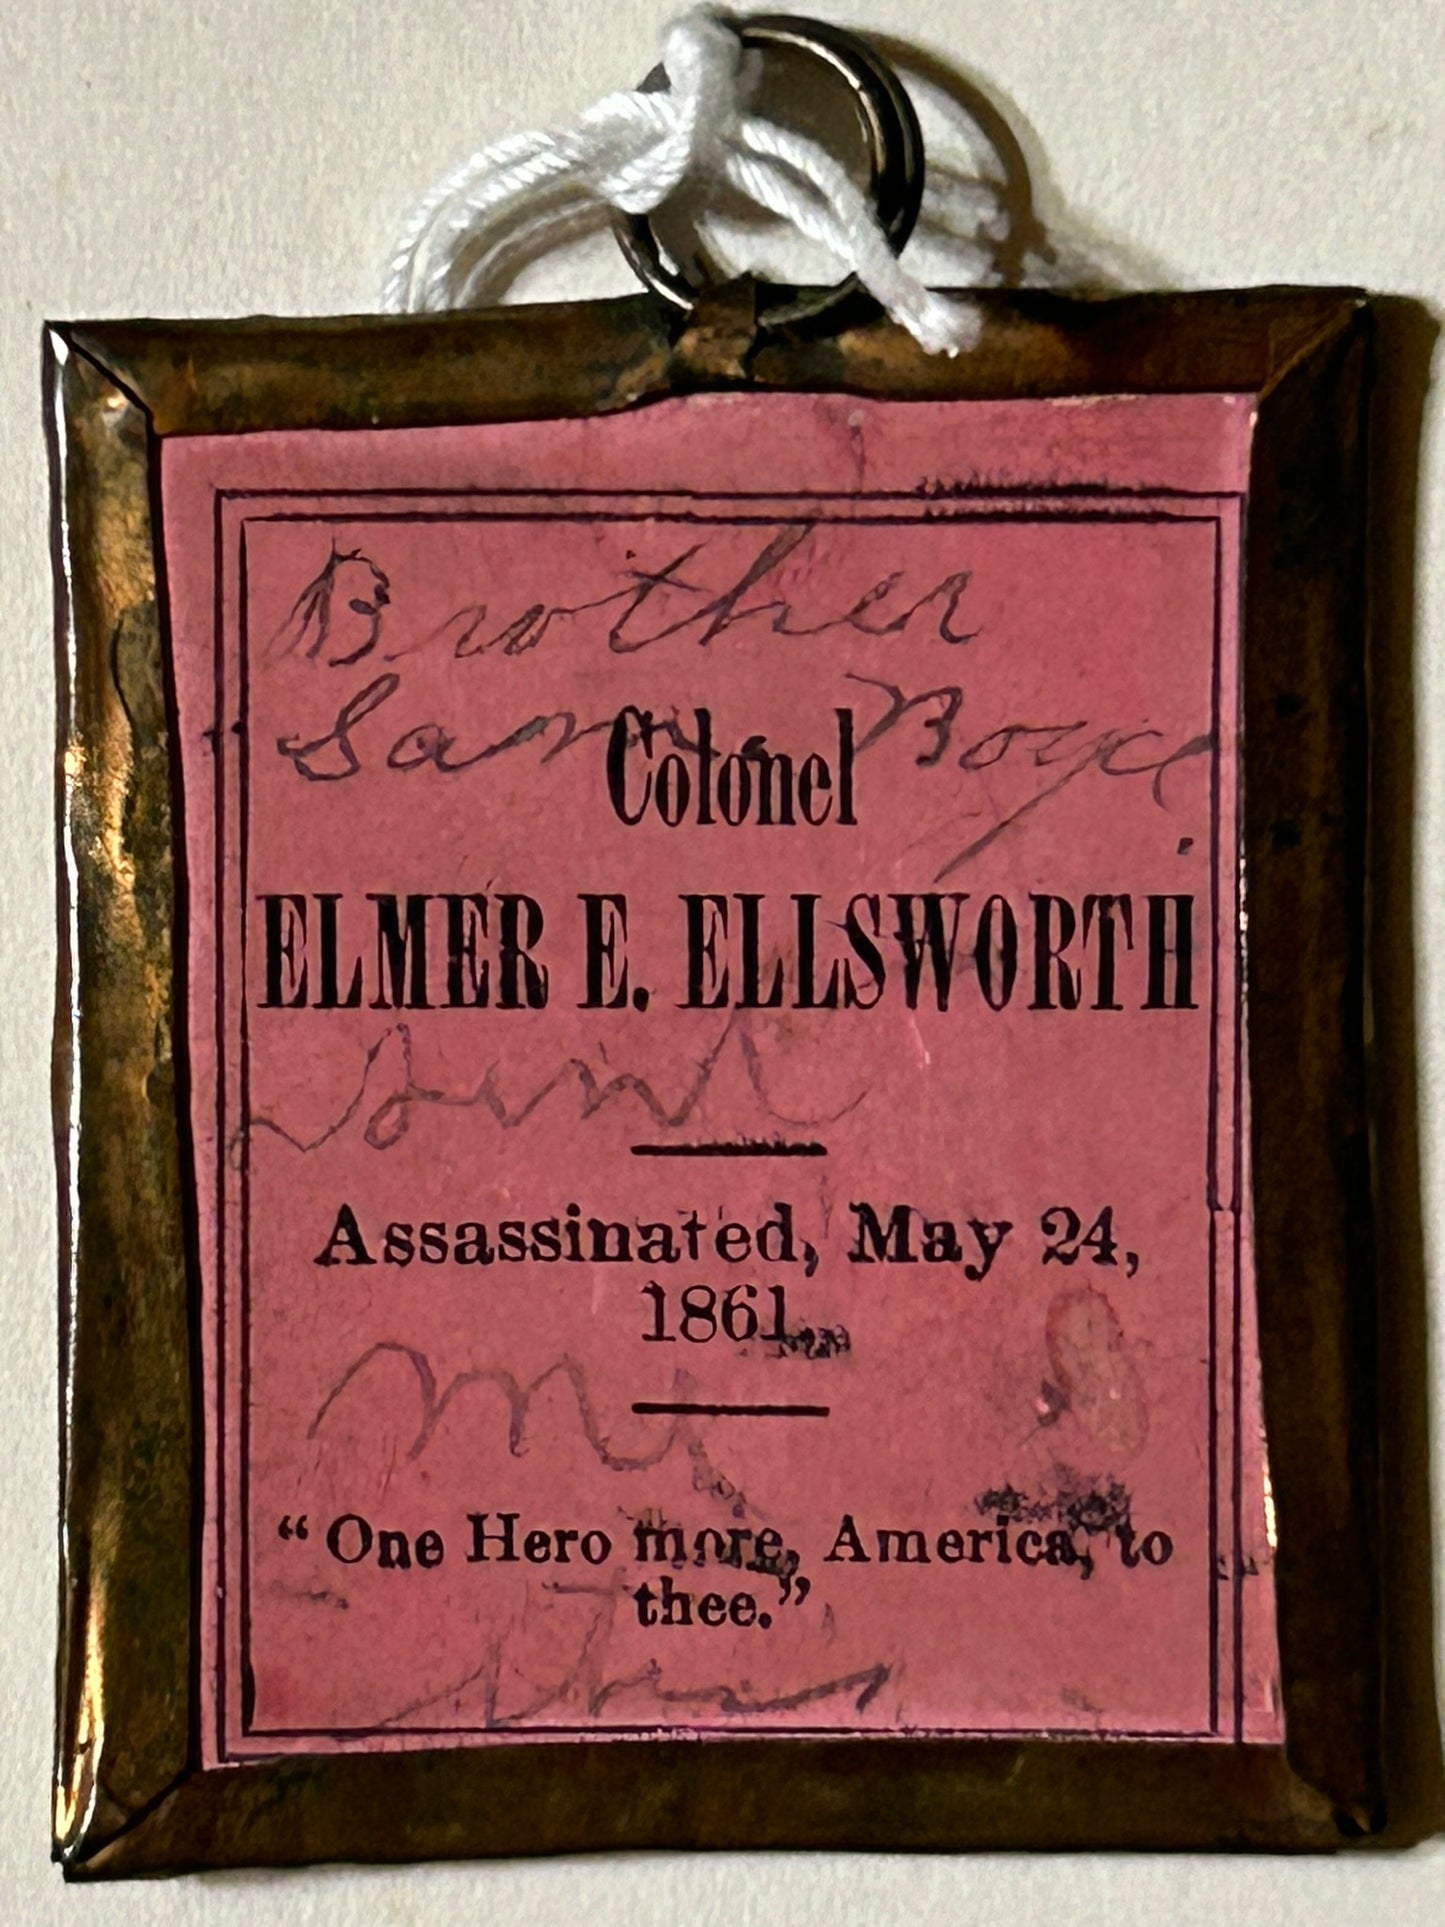 Brother
Sam. Boyce
Colonel
ELMER E. ELLSWORTH
Sent
Assassinated, May 24,
1861.
Me
“One Hero more, America, to
thee.”
this